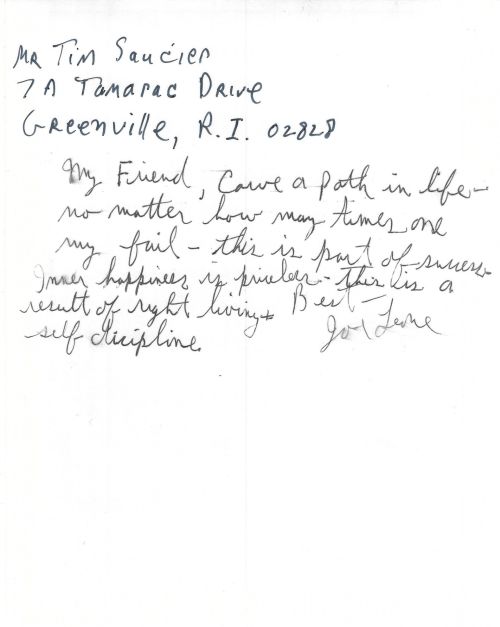 MR TIM SAUCIER
7A TAMARAC DRIVE
GREENVILLE, R.I. 02828
My Friend, Carve a path in life-
no matter how may times one
my fail - this is part of success-
Inner happiness is priceless - this is a
result of right living + Best -
self discipline. Leone